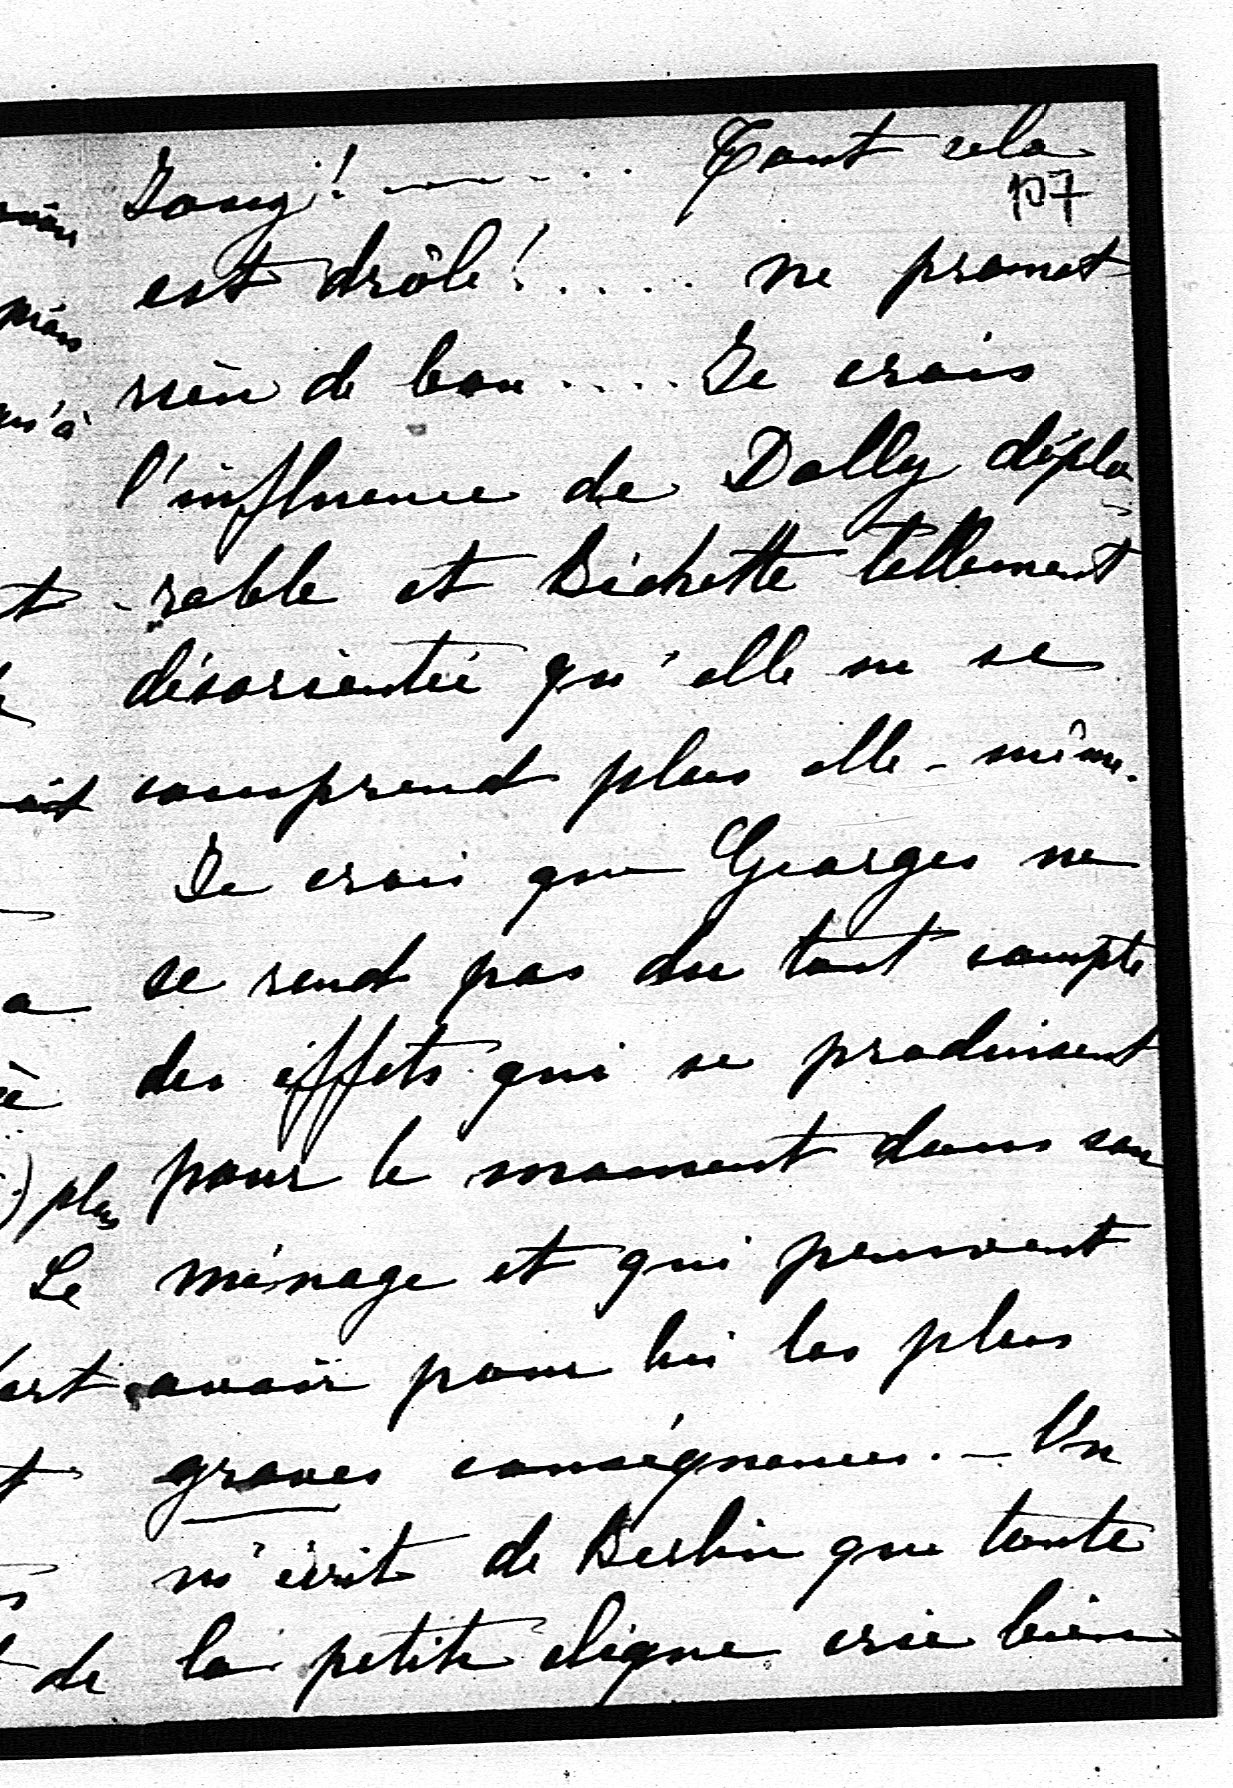 plus
Le
de
! — . . . . Tout cela
107
est drôle! . . . . ne promet
rien de bon . . . . Je crois
l'influence de Dolly déplo
-rable et Bichette tellement
désorientée qu'elle ne se
comprend plus elle-même.
Je crois que Georges ne
se rend pas du tout compte
des effets qui se produisent
pour le moment dans son
ménage et qui peuvent
avoir pour lui les plus
graves conséquences. — On
m'écrit de Berlin que toute
la petite clique crie bien